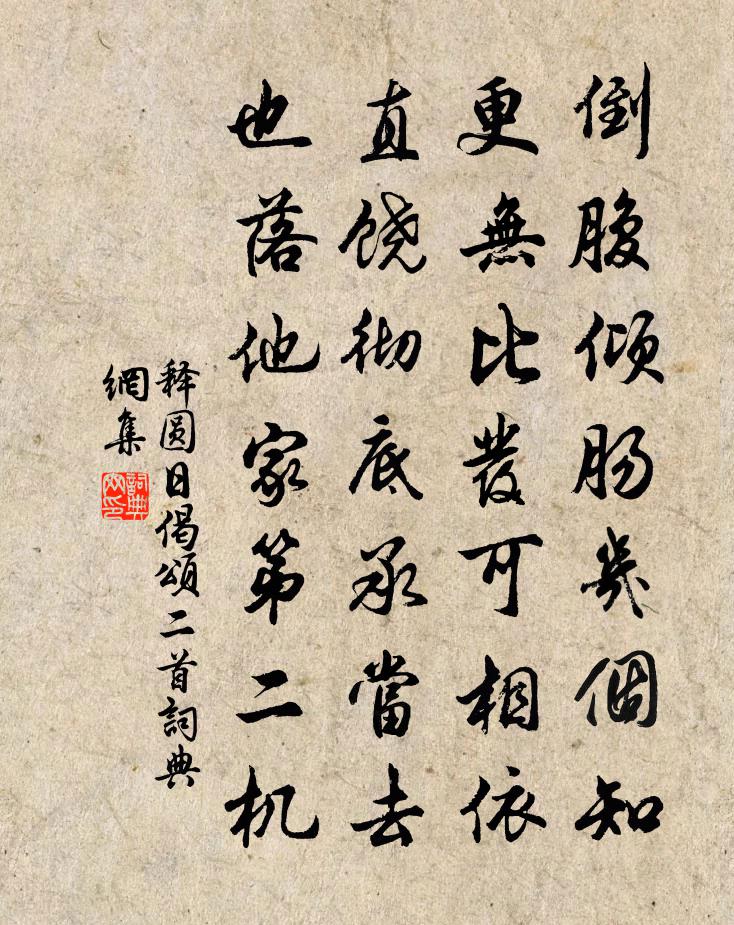 倒腹倾肠几個知
更無比發可相依
直饶彻底承當去
也落他家第二机
释圆日偈頌二首詞典
網集
詞典網印